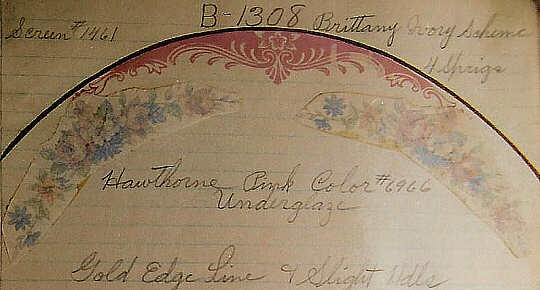 B-1308 Brittany Ivory Scheme
Screen #1461
4 Sprigs
Hawthorne Pink Color #6966
Underglaze
Gold Edge Line & Slight Hdls